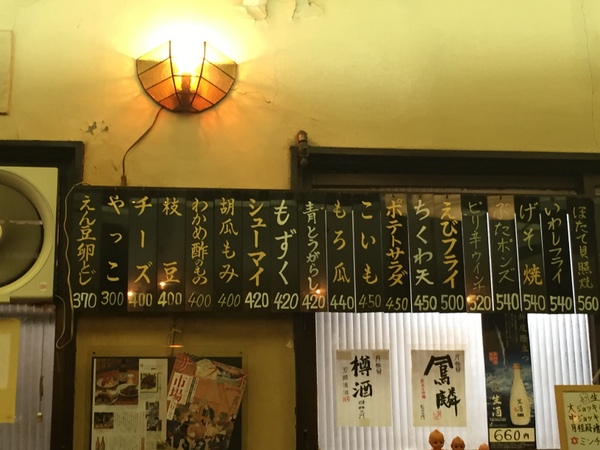 えん豆卵とじ 370
やっこ 300
チーズ 400
枝豆 400
わかめ酢のもの 400
胡瓜もみ 400
シューマイ 420
もずく 420
青とうがらし 420
もろ瓜 440
こいも 450
ポテトサラダ 450
ちくわ天 450
えびフライ 500
ピリ辛ウインナ 520
ぶたポンズ 540
げそ焼 540
いわしフライ 540
ほたて貝照焼 560
樽酒
鳳麟
生酒
660円
市場
生
大ジョッキ
中ジョッキ
月桂冠
ミンチ